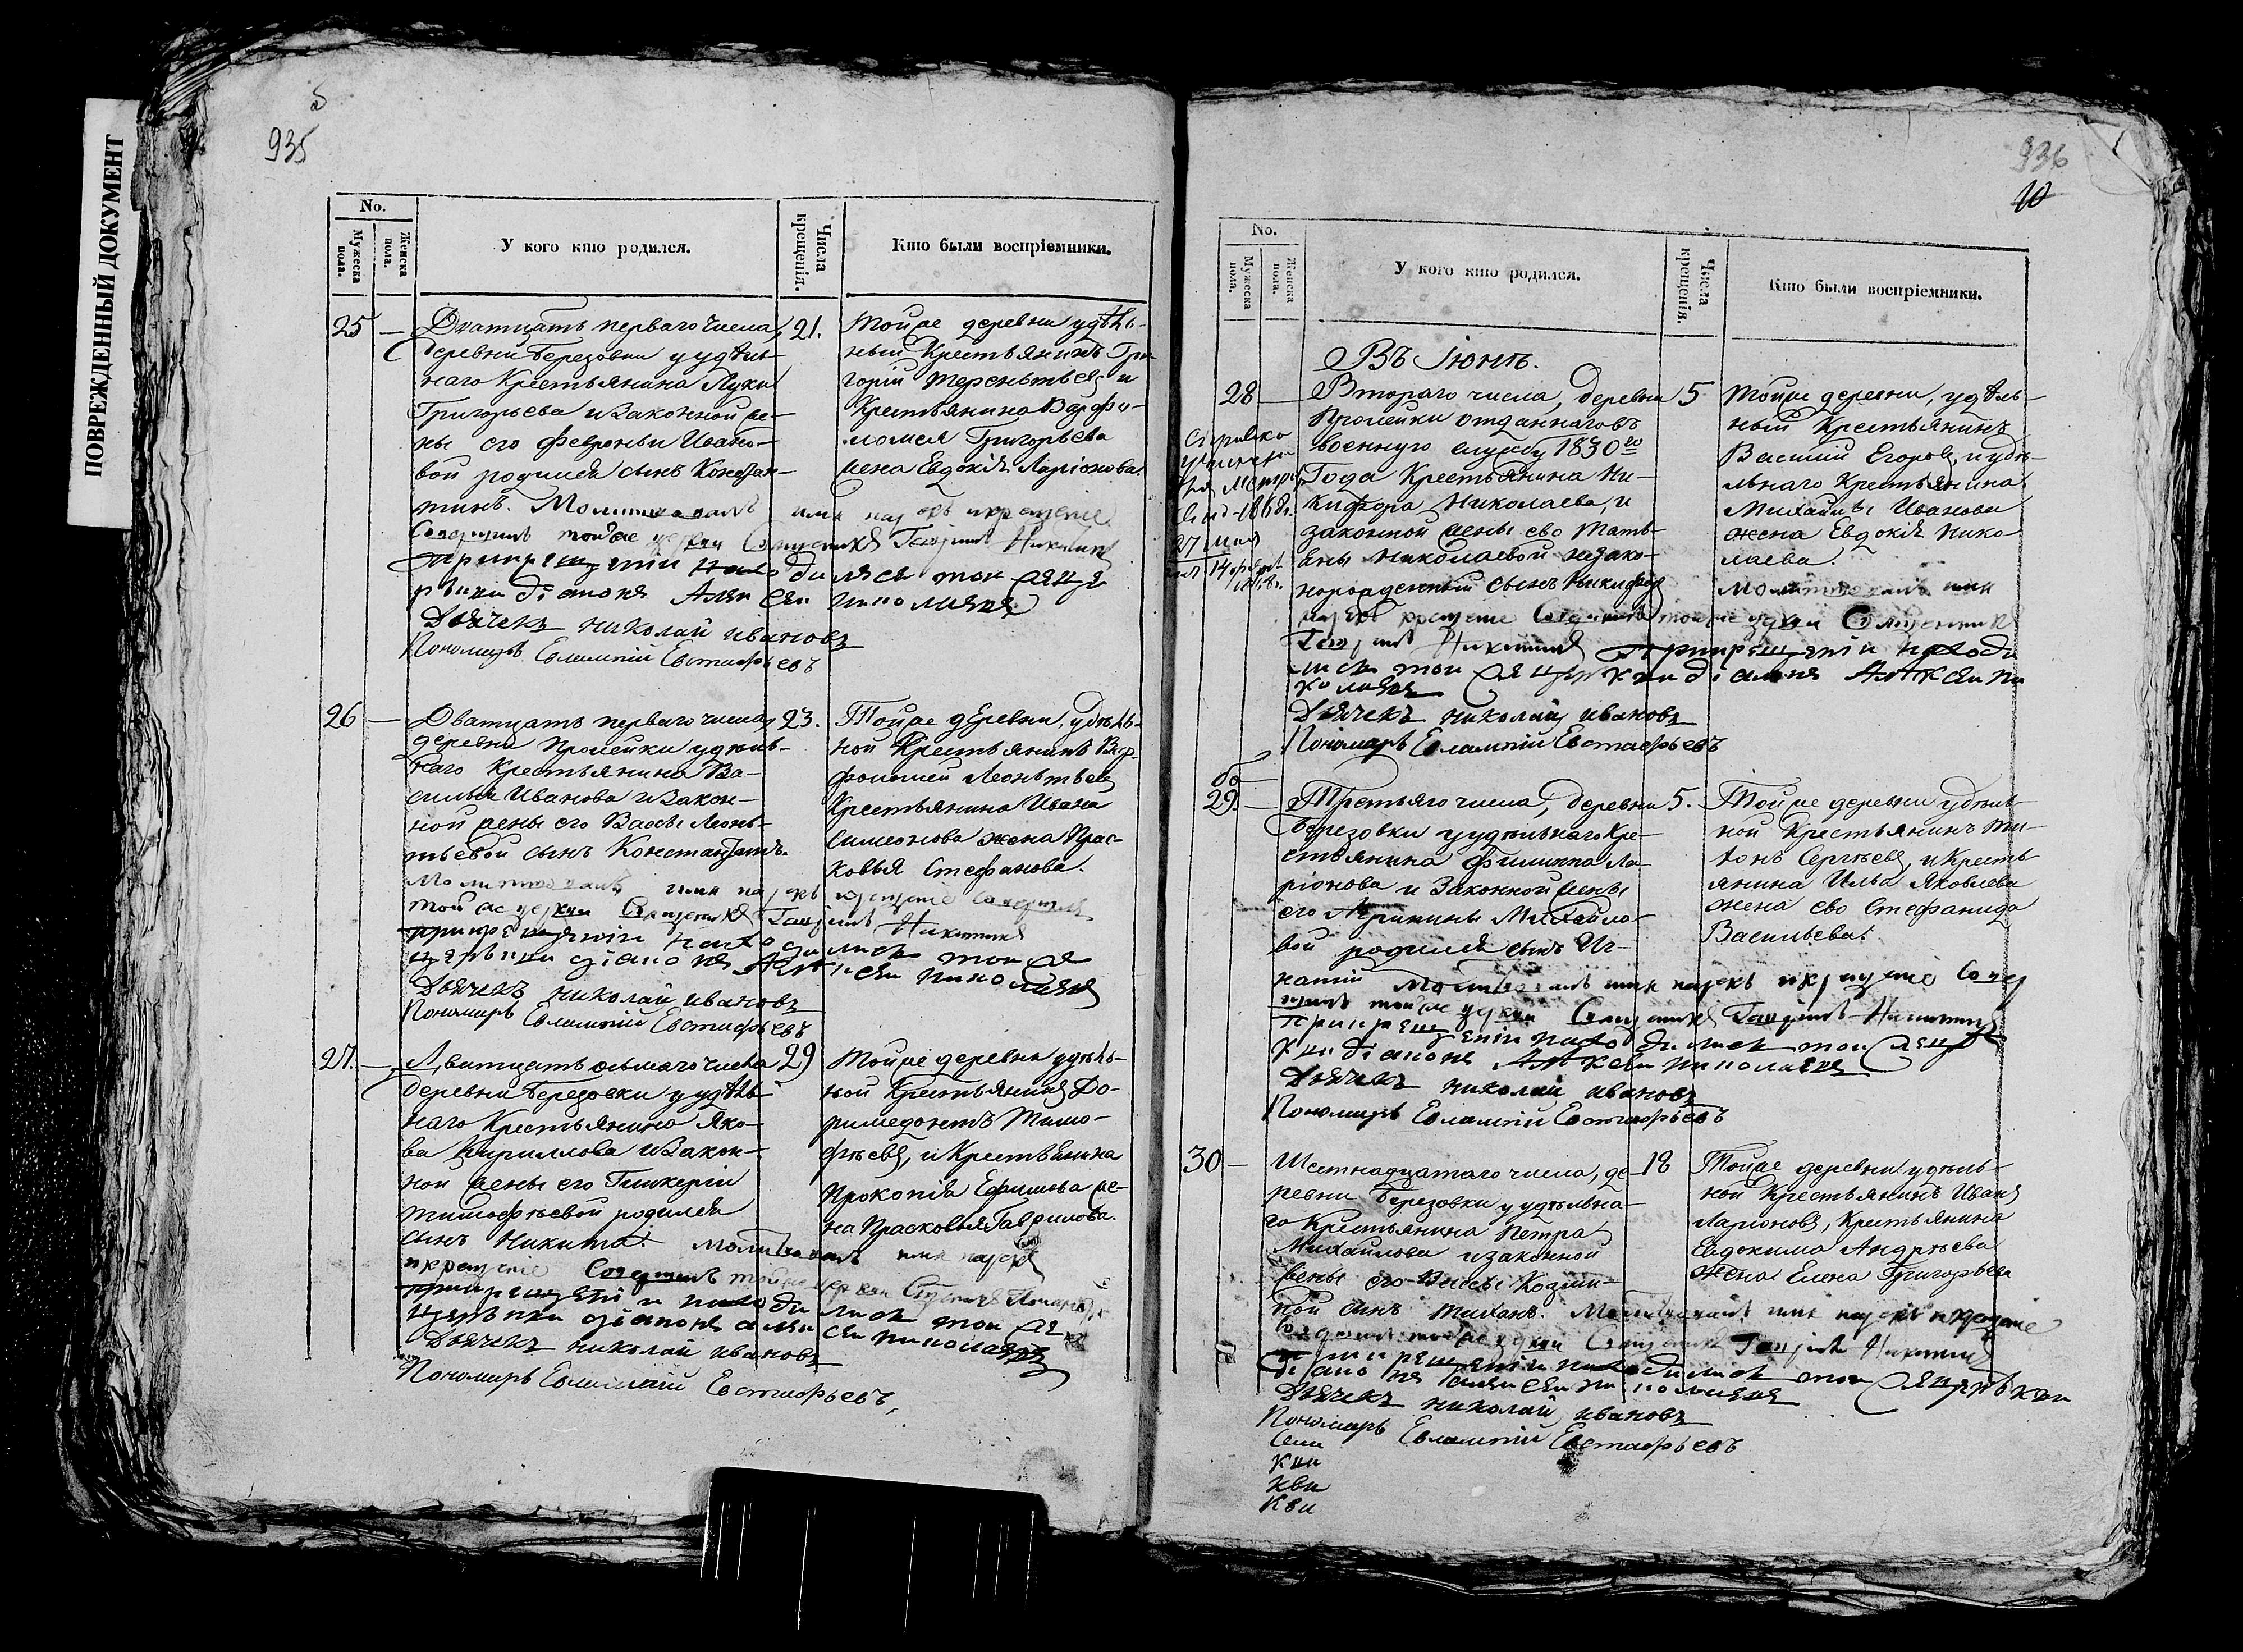 ПОВРЕЖДЕННЫЙ ДОКУМЕНТ
935
No.
Мужеска пола.
Женска пола.
У кого кто родился.
Числа крещенія.
Кто были воспріемники.
25 — Дватцать перваго числа, 21.
деревни Березовки у удѣль-
наго Крестьянина Луки
Григорьева и Законной же-
ны его Февроньи Ивано-
вой родился сынъ Констан-
тинъ. Молитвовалъ имя нарекъ и крещеніе
Совершилъ тойже церкви Священникъ Никитинъ
при крещеніи находились тои же це
ркви діаконъ Алексеи николаевъ
Дьячекъ николай ивановъ
Пономарь Евлампій Евстафьевъ
Тойже деревни удѣль-
ный Крестьянинъ Гри-
горій Терентьевъ и
Крестьянина Варфо-
ломея Григорьева
жена Евдокія Ларіонова.
26 — Дватцать перваго числа, 23.
деревни Пролейки у удѣль-
наго Крестьянина Ва-
силья Иванова и Закон-
ной жены его Вассы Леонь-
тьевой сынъ Константинъ.
Молитвовалъ имя нарекъ и крещеніе Совершилъ
той же церкви Священникъ Никитинъ
при крещеніи находились тои же
церкви діаконъ Алексеи николаевъ
Дьячекъ николай ивановъ
Пономарь Евлампій Евстафьевъ
Тойже деревни, удѣль-
ной Крестьянинъ Вар-
фоломей Леонтьевъ
Крестьянина Ивана
Симеонова жена Прас-
ковья Стефанова.
27. — Дватцать осьмаго числа 29
деревни Березовки у удѣль-
наго Крестьянина Яко-
ва Кириллова и Закон-
ной жены его Гликеріи
Тимофѣевой родился
сынъ Никита. Молитвовалъ имя нарекъ
и крещеніе Совершилъ тойже церкви
при крещеніи находились тои же
церкви діаконъ алексеи николаевъ
Дьячекъ николай ивановъ
Пономарь Евлампій Евстафьевъ,
Тойже деревни удѣль-
ной Крестьянинъ До-
римедонтъ Тимо-
фѣевъ, и Крестьянина
Прокопія Ефимова же-
на Прасковья Гаврилова.
936
10
No.
Мужеска пола.
Женска пола.
У кого кто родился.
Числа крещенія.
Кто были воспріемники.
Въ Іюнѣ.
28 — Втораго числа, деревни 5
Пролейки отданнаго въ
военную службу 1830го
Года Крестьянина Ни-
кифора Николаева, и
законной жены его Тать-
яны Николаевой незако-
норожденный сынъ Никифоръ
Молитвовалъ имя
нарекъ крещеніе Совершилъ тойже церкви Священникъ
Никитинъ при крещеніи находи
лись тои же церкви діаконъ Алексеи ни
колаевъ
Дьячекъ николай ивановъ
Пономарь Евлампій Евстафьевъ
Тойже деревни, удѣль-
ный Крестьянинъ
Василій Егоровъ, и удѣ-
льнаго Крестьянина
Михайлы Иванова
жена Евдокія Нико-
лаева.
29. — Третьяго числа, деревни 5.
Березовки у удѣльнаго Кре-
стьянина Филиппа Ла-
ріонова и Законной жены
его Ирины Михайло-
вой родился сынъ Иг-
натій Молитвовалъ имя нарекъ и крещеніе Совер
шилъ тойже церкви Священникъ Никитинъ
при крещеніи находились тои же цер
кви діаконъ Алексеи николаевъ
Дьячекъ николай ивановъ
Пономарь Евлампій Евстафьевъ
Тойже деревни удѣль-
ной Крестьянинъ
Сергѣевъ, и Кресть-
янина Ильи Яковлева
жена его Стефанида
Васильева.
30 — Шестнадцатаго числа, де- 18
ревни Березовки у удѣльна-
го Крестьянина Петра
Михайлова и законной
жены его Вассы Козми-
ной сынъ Тиханъ. Молитвовалъ имя нарекъ и крещеніе
Совершилъ тойже церкви Священникъ Никитинъ
при крещеніи находились тои же церкви
діаконъ алексеи николаевъ
Дьячекъ николай ивановъ
Пономарь Евлампій Евстафьевъ
Тойже деревни удѣль-
ной Крестьянинъ Иванъ
Ларіоновъ, Крестьянина
Евдокима Андрѣева
жена Елена Григорьева
кви
кви